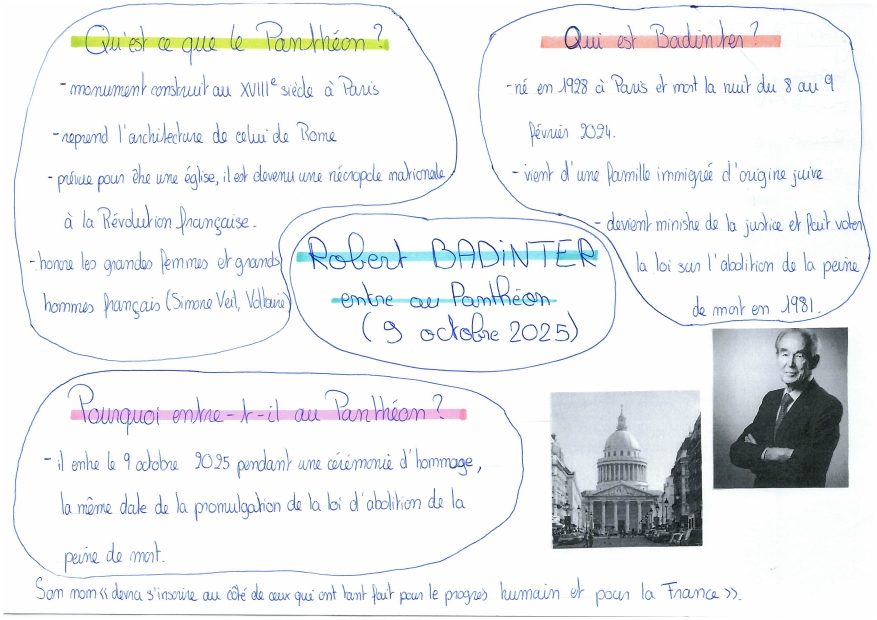 Qu'est ce que le Panthéon ?
- monument construit au XVIIIe siècle à Paris
- reprend l'architecture de celui de Rome
- prévue pour être une église, il est devenu une nécropole nationale
à la Révolution française.
- honore les grandes femmes et grands
hommes français (Simone Veil, Voltaire)
Qui est Badinter ?
- né en 1928 à Paris et mort la nuit du 8 au 9
février 2024.
- vient d'une famille immigrée d'origine juive
- devient ministre de la justice et fait voter
la loi sur l'abolition de la peine
de mort en 1981.
Robert BADINTER
entre au Panthéon
(9 octobre 2025)
Pourquoi entre-t-il au Panthéon ?
- il entre le 9 octobre 2025 pendant une cérémonie d'hommage,
la même date de la promulgation de la loi d'abolition de la
peine de mort.
Son nom « devra s'inscrire au côté de ceux qui ont tant fait pour le progrès humain et pour la France ».